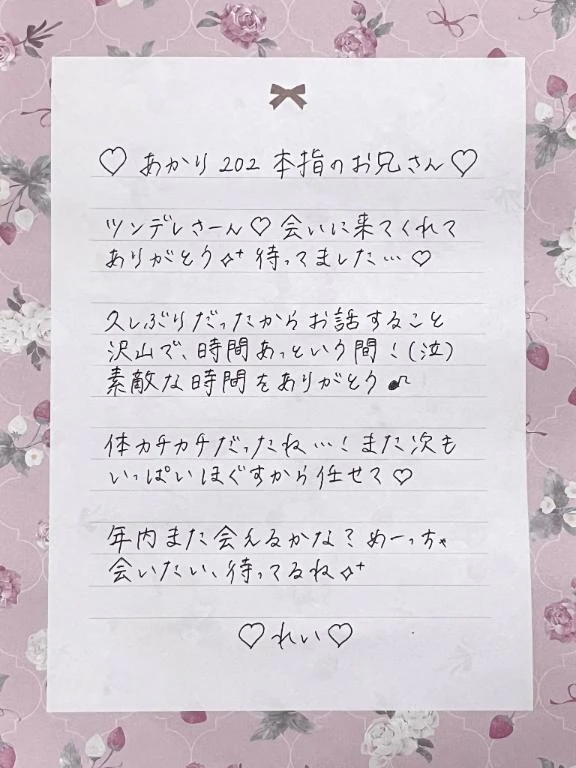 ♡ あかり 202 本指のお兄さん ♡
ツンデレさーん♡ 会いに来てくれて
ありがとう✧⁺ 待ってました… ♡
久しぶりだったからお話すること
沢山で、時間あっという間！(泣)
素敵な時間をありがとう♪
体カチカチだったね…！また次も
いっぱいほぐすから任せて♡
年内また会えるかな？めーっちゃ
会いたい、待ってるね✧⁺
♡ れい ♡